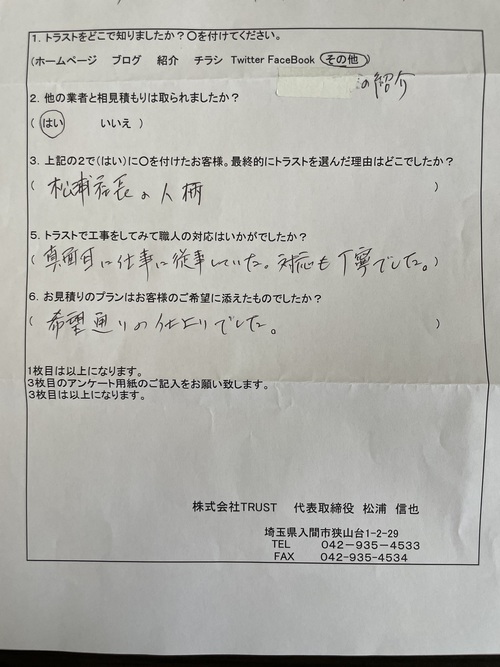 1. トラストをどこで知りましたか？〇を付けてください。
(ホームページ ブログ 紹介 チラシ Twitter FaceBook その他)
の紹介
2. 他の業者と相見積もりは取られましたか？
( はい いいえ )
3. 上記の2で(はい)に〇を付けたお客様。最終的にトラストを選んだ理由はどこでしたか？
( 松浦社長の人柄 )
5. トラストで工事をしてみて職人の対応はいかがでしたか？
( 真面目に仕事に従事していた。対応も丁寧でした。)
6. お見積りのプランはお客様のご希望に添えたものでしたか？
( 希望通りの仕上りでした。 )
1枚目は以上になります。
3枚目のアンケート用紙のご記入をお願い致します。
3枚目は以上になります。
株式会社TRUST 代表取締役 松浦 信也
埼玉県入間市狭山台1-2-29
TEL 042-935-4533
FAX 042-935-4534